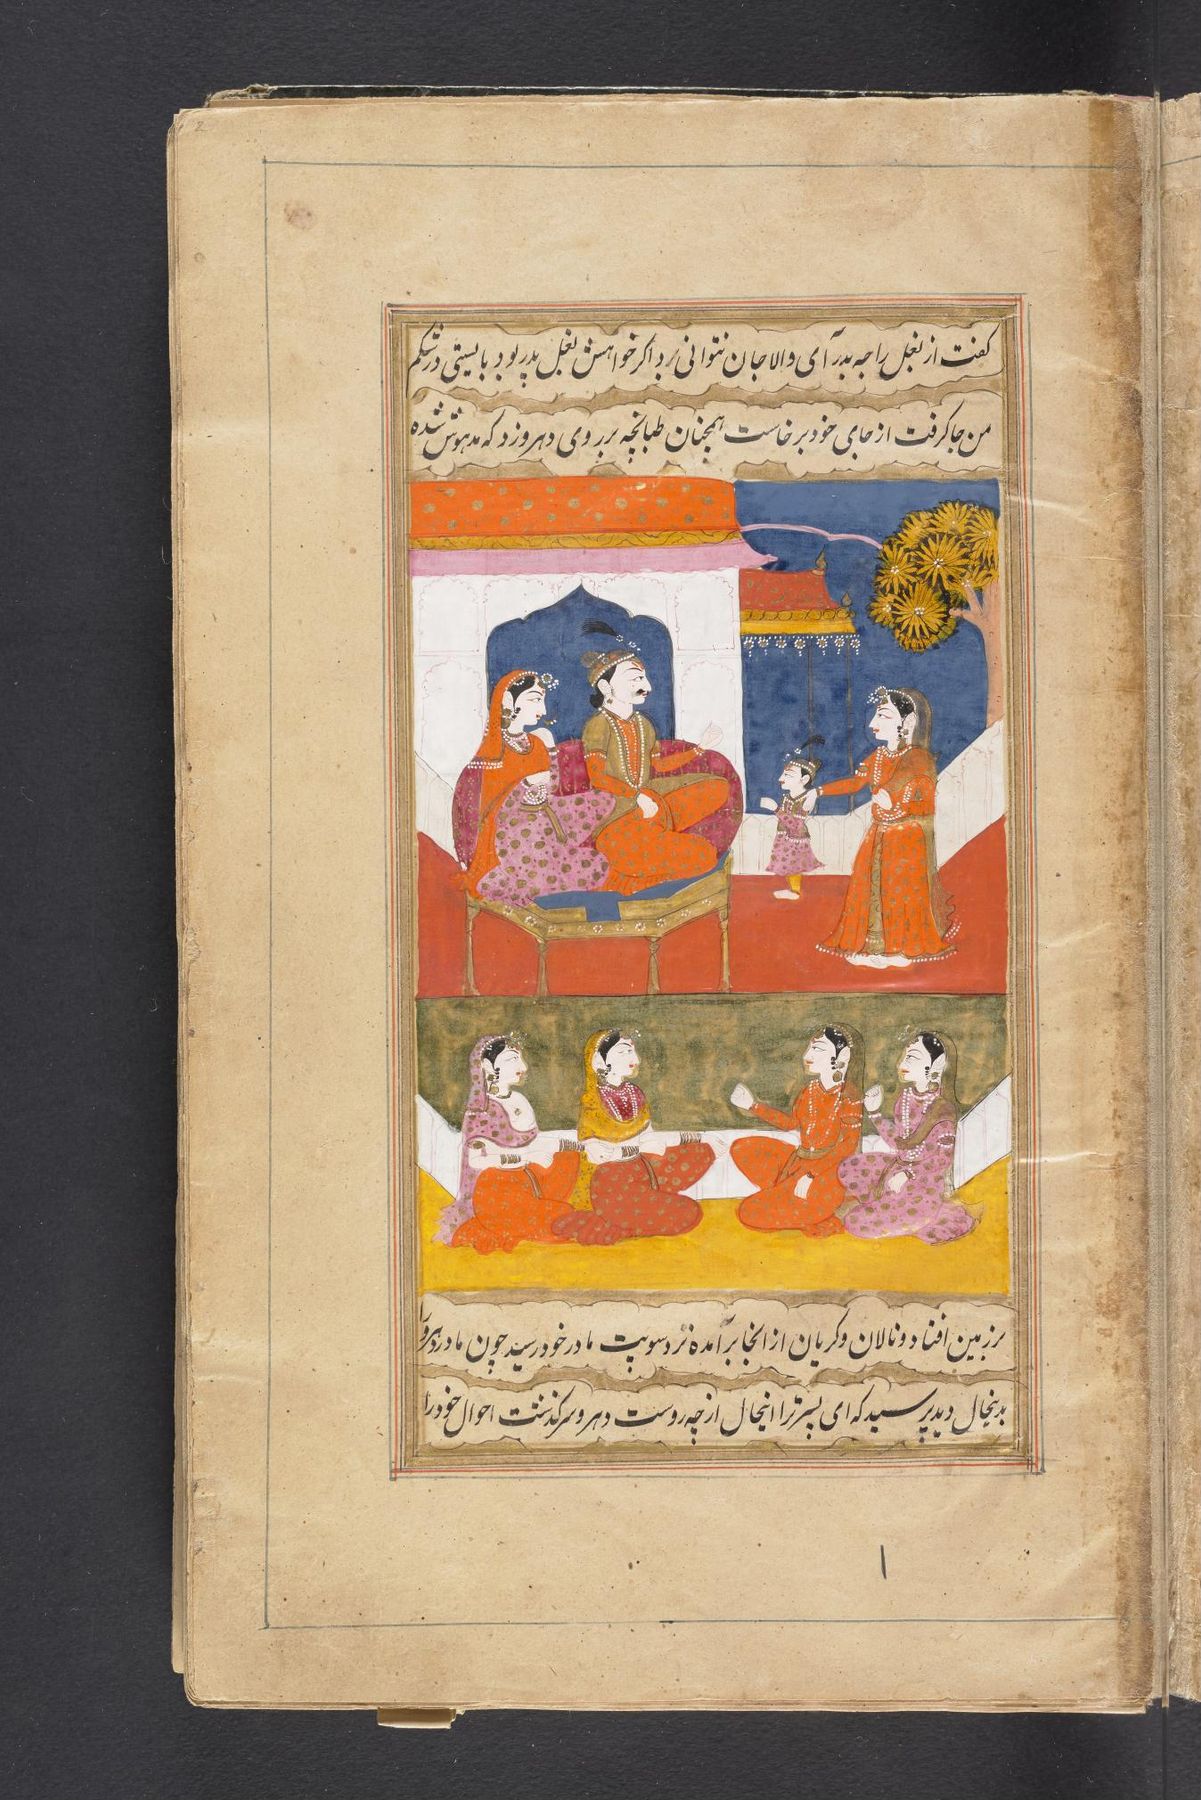 2
کفت از بغل راجه بدر آی والا جان نتوانی برد اکر خواهش بغل پدر بود بایستی در شکم
من جا کرفت از جای خود برخاست همچنان طبانچه بر روی دهروزد که مدهوش شده
برزمین افتاد و نالان و کریان از انجا برآمده نزد سونیت مادر خود رسید چون مادر دهرورا
بدینحال دید پرسید که ای پسر ترا اینحال از چه روست دهرو سرکذشت احوال خودرا